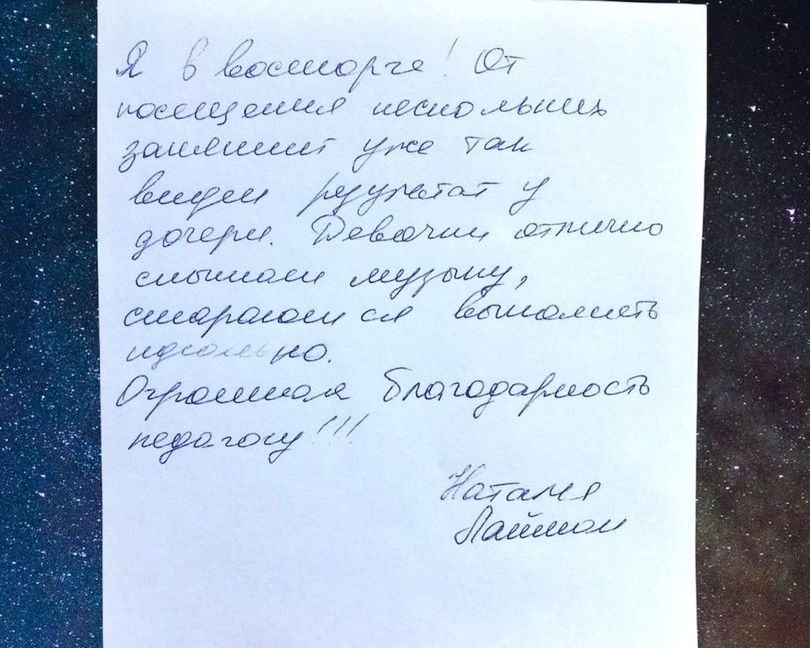 Я в восторге! От
посещения нескольких
занятий уже так
виден результат у
дочери. Девочки отлично
слышат музыку,
стараются выполнять
идеально.
Огромная благодарность
педагогу!!!
Наталия